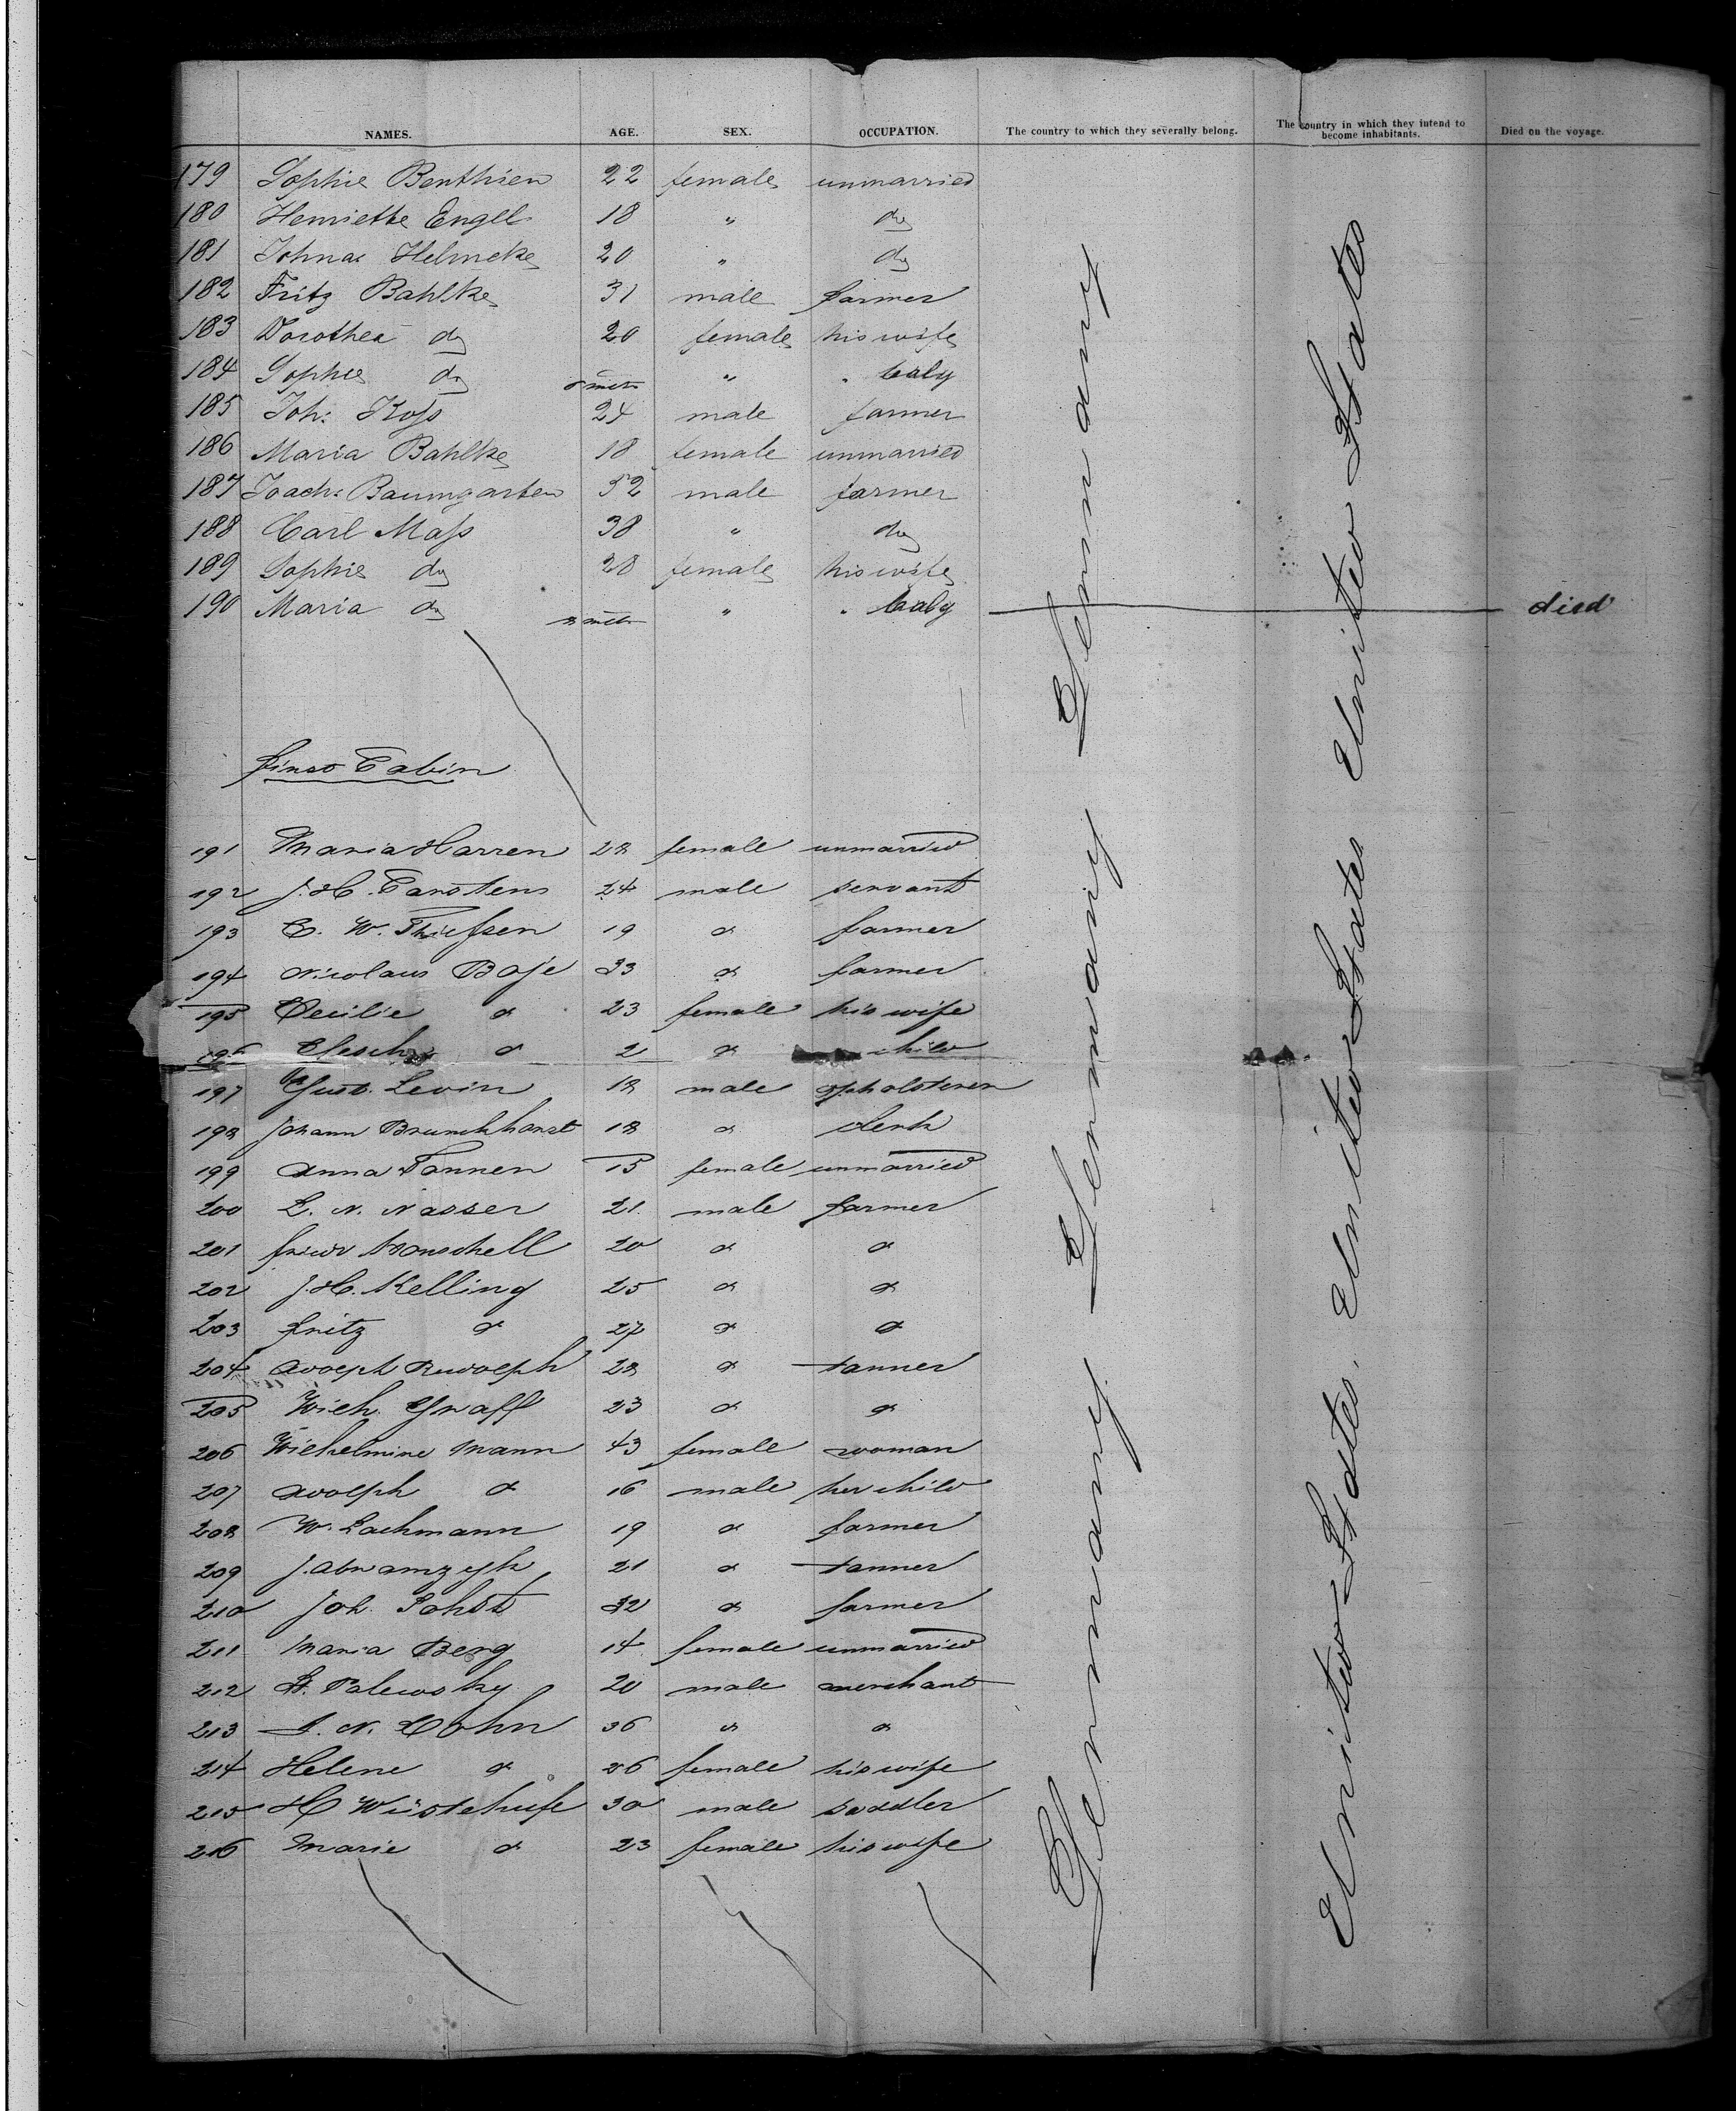 NAMES. AGE. SEX. OCCUPATION. The country to which they severally belong. The country in which they intend to become inhabitants. Died on the voyage.
179 Sophie Benthien 22 female unmarried
180 Henriette Engel 18 " do
181 Johna Helmcke 20 " do
182 Fritz Bahlke 31 male farmer
183 Dorothea do 20 female his wife
184 Sophie do mth " " baby
185 Joh: Koss 24 male farmer
186 Maria Bahlke 18 female unmarried
187 Joach: Baumgarten 52 male farmer
188 Carl Mass 38 " do
189 Sophie do 28 female his wife
190 Maria do mth " " baby died
First Cabin
191 Maria Harren 28 female unmarried
192 J. H. Carstens 24 male servant
193 C. W. Thiessen 19 d farmer
194 Nicolaus Boje 33 d farmer
195 Cecilie d 23 female his wife
196 d 2 d child
197 Gust. Levin 18 male upholsterer
198 Johann Brunckhorst 18 d clerk
199 Anna Tannen 15 female unmarried
200 L. N. Nasser 21. male farmer
201 Friedr 20 d d
202 J. H. Kelling 25 d d
203 Fritz d 27 d d
204 Adolph Rudolph 28 d tanner
205 Wilh. Graff 23 d d
206 Wilhelmine Mann 43 female woman
207 Adolph d 16 male her child
208 W. Lachmann 19 d farmer
209 J. 21 d tanner
210 Joh. 32 d farmer
211 Maria Berg 14 female unmarried
212 Palewsky 20 male merchant
213 N. Cohn 36 d d
214 Helene d 26 female his wife
215 H Wüstehufe 30 male saddler
216 Marie d 23 female his wife
Germany Germany Germany
United States United States United States